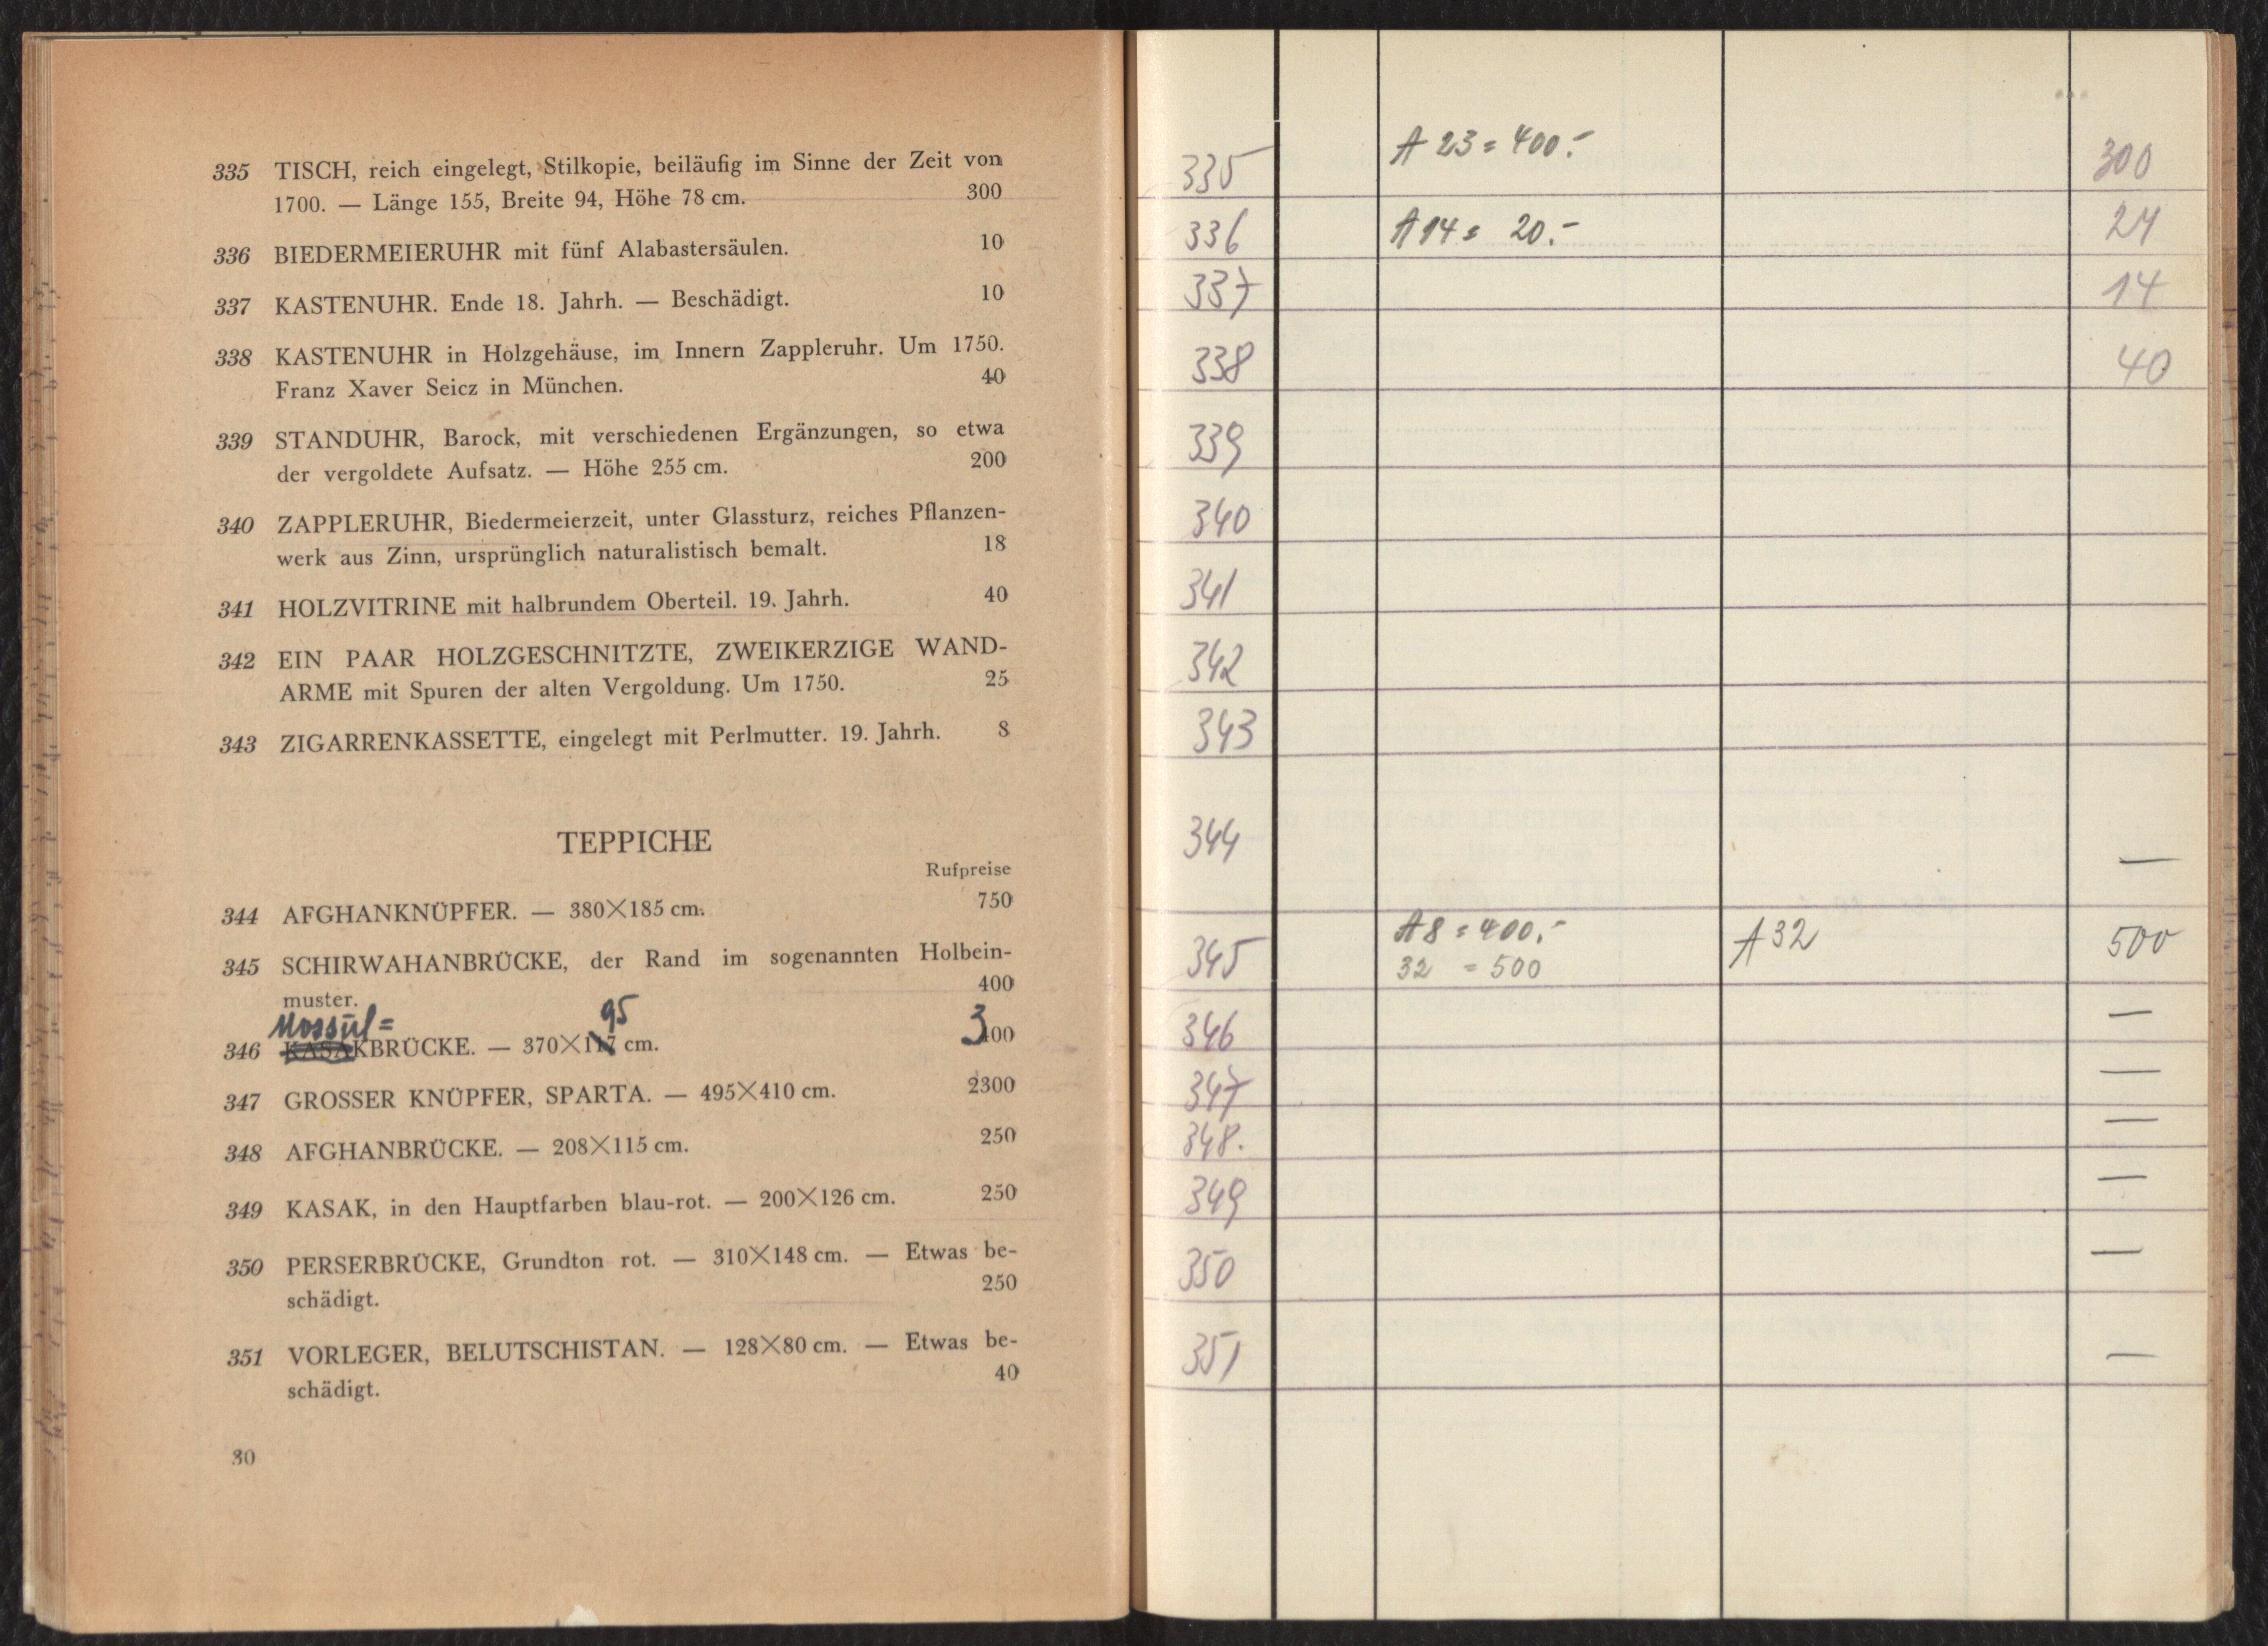 335 TISCH, reich eingelegt, Stilkopie, beiläufig im Sinne der Zeit von
1700. — Länge 155, Breite 94, Höhe 78 cm. 300
336 BIEDERMEIERUHR mit fünf Alabastersäulen. 10
337 KASTENUHR. Ende 18. Jahrh. — Beschädigt. 10
338 KASTENUHR in Holzgehäuse, im Innern Zappleruhr. Um 1750.
Franz Xaver Seicz in München. 40
339 STANDUHR, Barock, mit verschiedenen Ergänzungen, so etwa
der vergoldete Aufsatz. — Höhe 255 cm. 200
340 ZAPPLERUHR, Biedermeierzeit, unter Glassturz, reiches Pflanzen-
werk aus Zinn, ursprünglich naturalistisch bemalt. 18
341 HOLZVITRINE mit halbrundem Oberteil. 19. Jahrh. 40
342 EIN PAAR HOLZGESCHNITZTE, ZWEIKERZIGE WAND-
ARME mit Spuren der alten Vergoldung. Um 1750. 25
343 ZIGARRENKASSETTE, eingelegt mit Perlmutter. 19. Jahrh. 8
TEPPICHE
Rufpreise
344 AFGHANKNÜPFER. — 380×185 cm. 750
345 SCHIRWAHANBRÜCKE, der Rand im sogenannten Holbein-
muster. 400
Mossul= 95
346 KASAKBRÜCKE. — 370×117 cm. 300
347 GROSSER KNÜPFER, SPARTA. — 495×410 cm. 2300
348 AFGHANBRÜCKE. — 208×115 cm. 250
349 KASAK, in den Hauptfarben blau-rot. — 200×126 cm. 250
350 PERSERBRÜCKE, Grundton rot. — 310×148 cm. — Etwas be-
schädigt. 250
351 VORLEGER, BELUTSCHISTAN. — 128×80 cm. — Etwas be-
schädigt. 40
30
335 A 23 = 400.- 300
336 A 14 = 20.- 24
337 14
338 40
339
340
341
342
343
344 —
345 A 8 = 400.- A 32 500
32 = 500
346 —
347 —
348. —
349 —
350 —
351 —